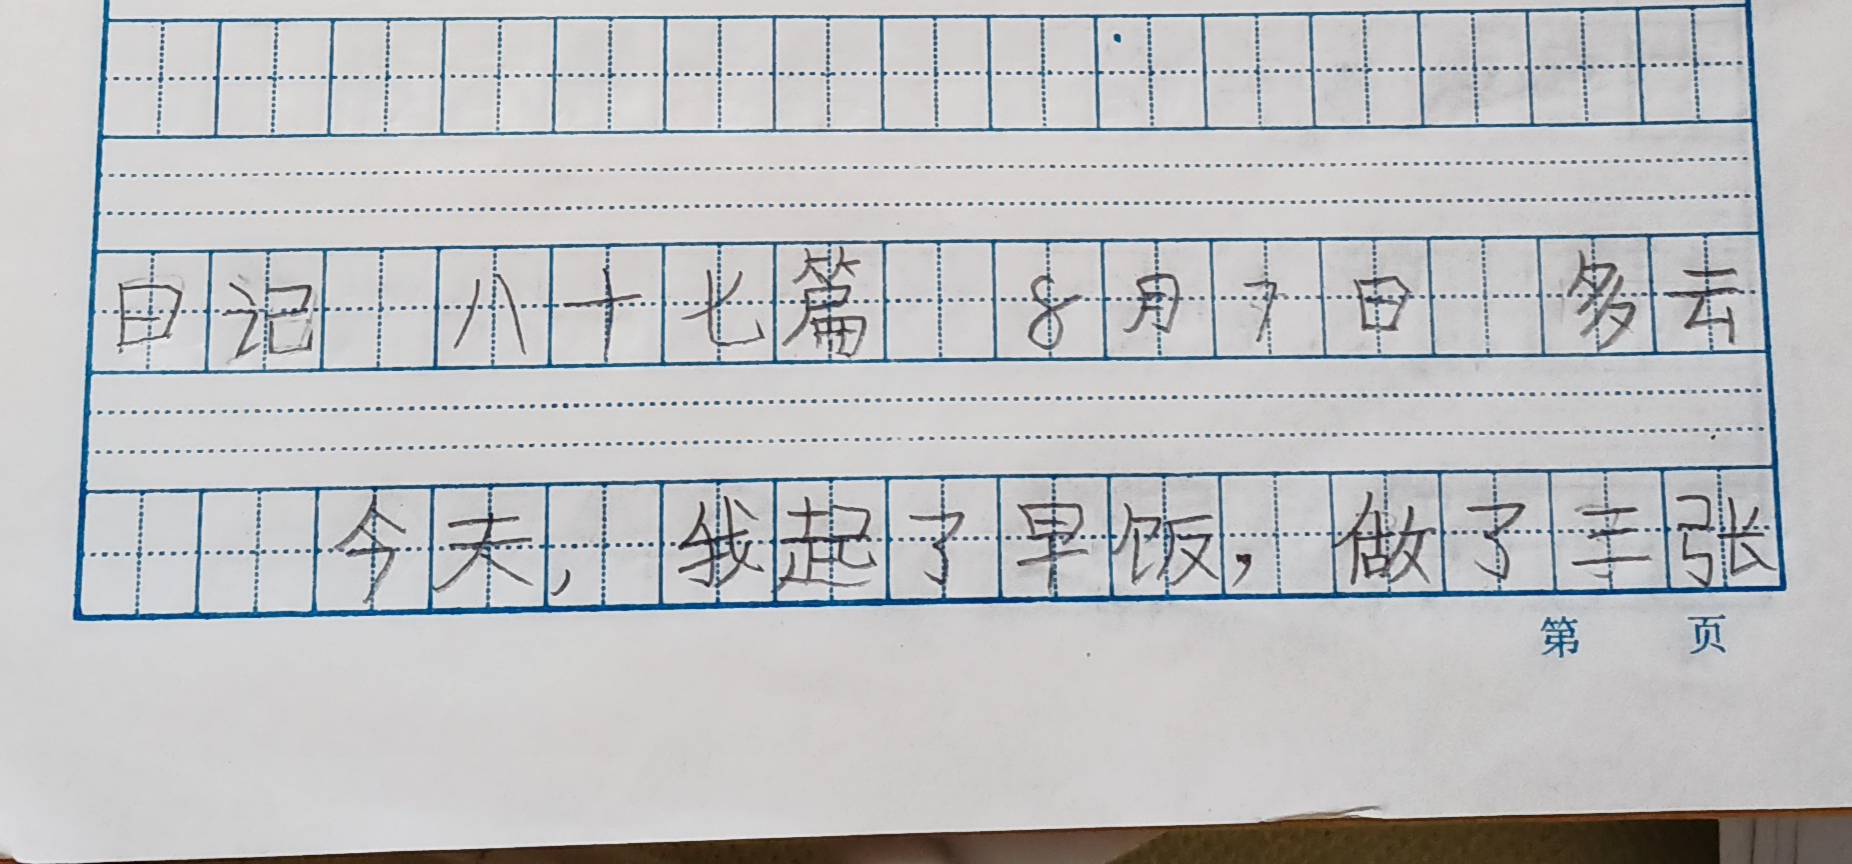 日记 八十七篇 8月7日 多云
今天，我起了早饭，做了三张
第 页